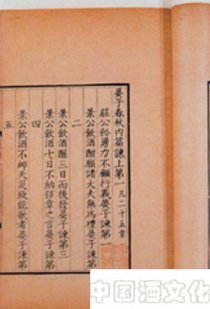 晏子春秋內篇諫上第一凡二十五章
莊公矜勇力不顧行義晏子諫第一
景公飲酒酣願諸大夫無為禮晏子諫第
二
景公飲酒酲三日而後發晏子諫第三
景公飲酒七日不納弦章之言晏子諫第
四
景公飲酒不恤天災致能歌者晏子諫第
五
中国酒文化